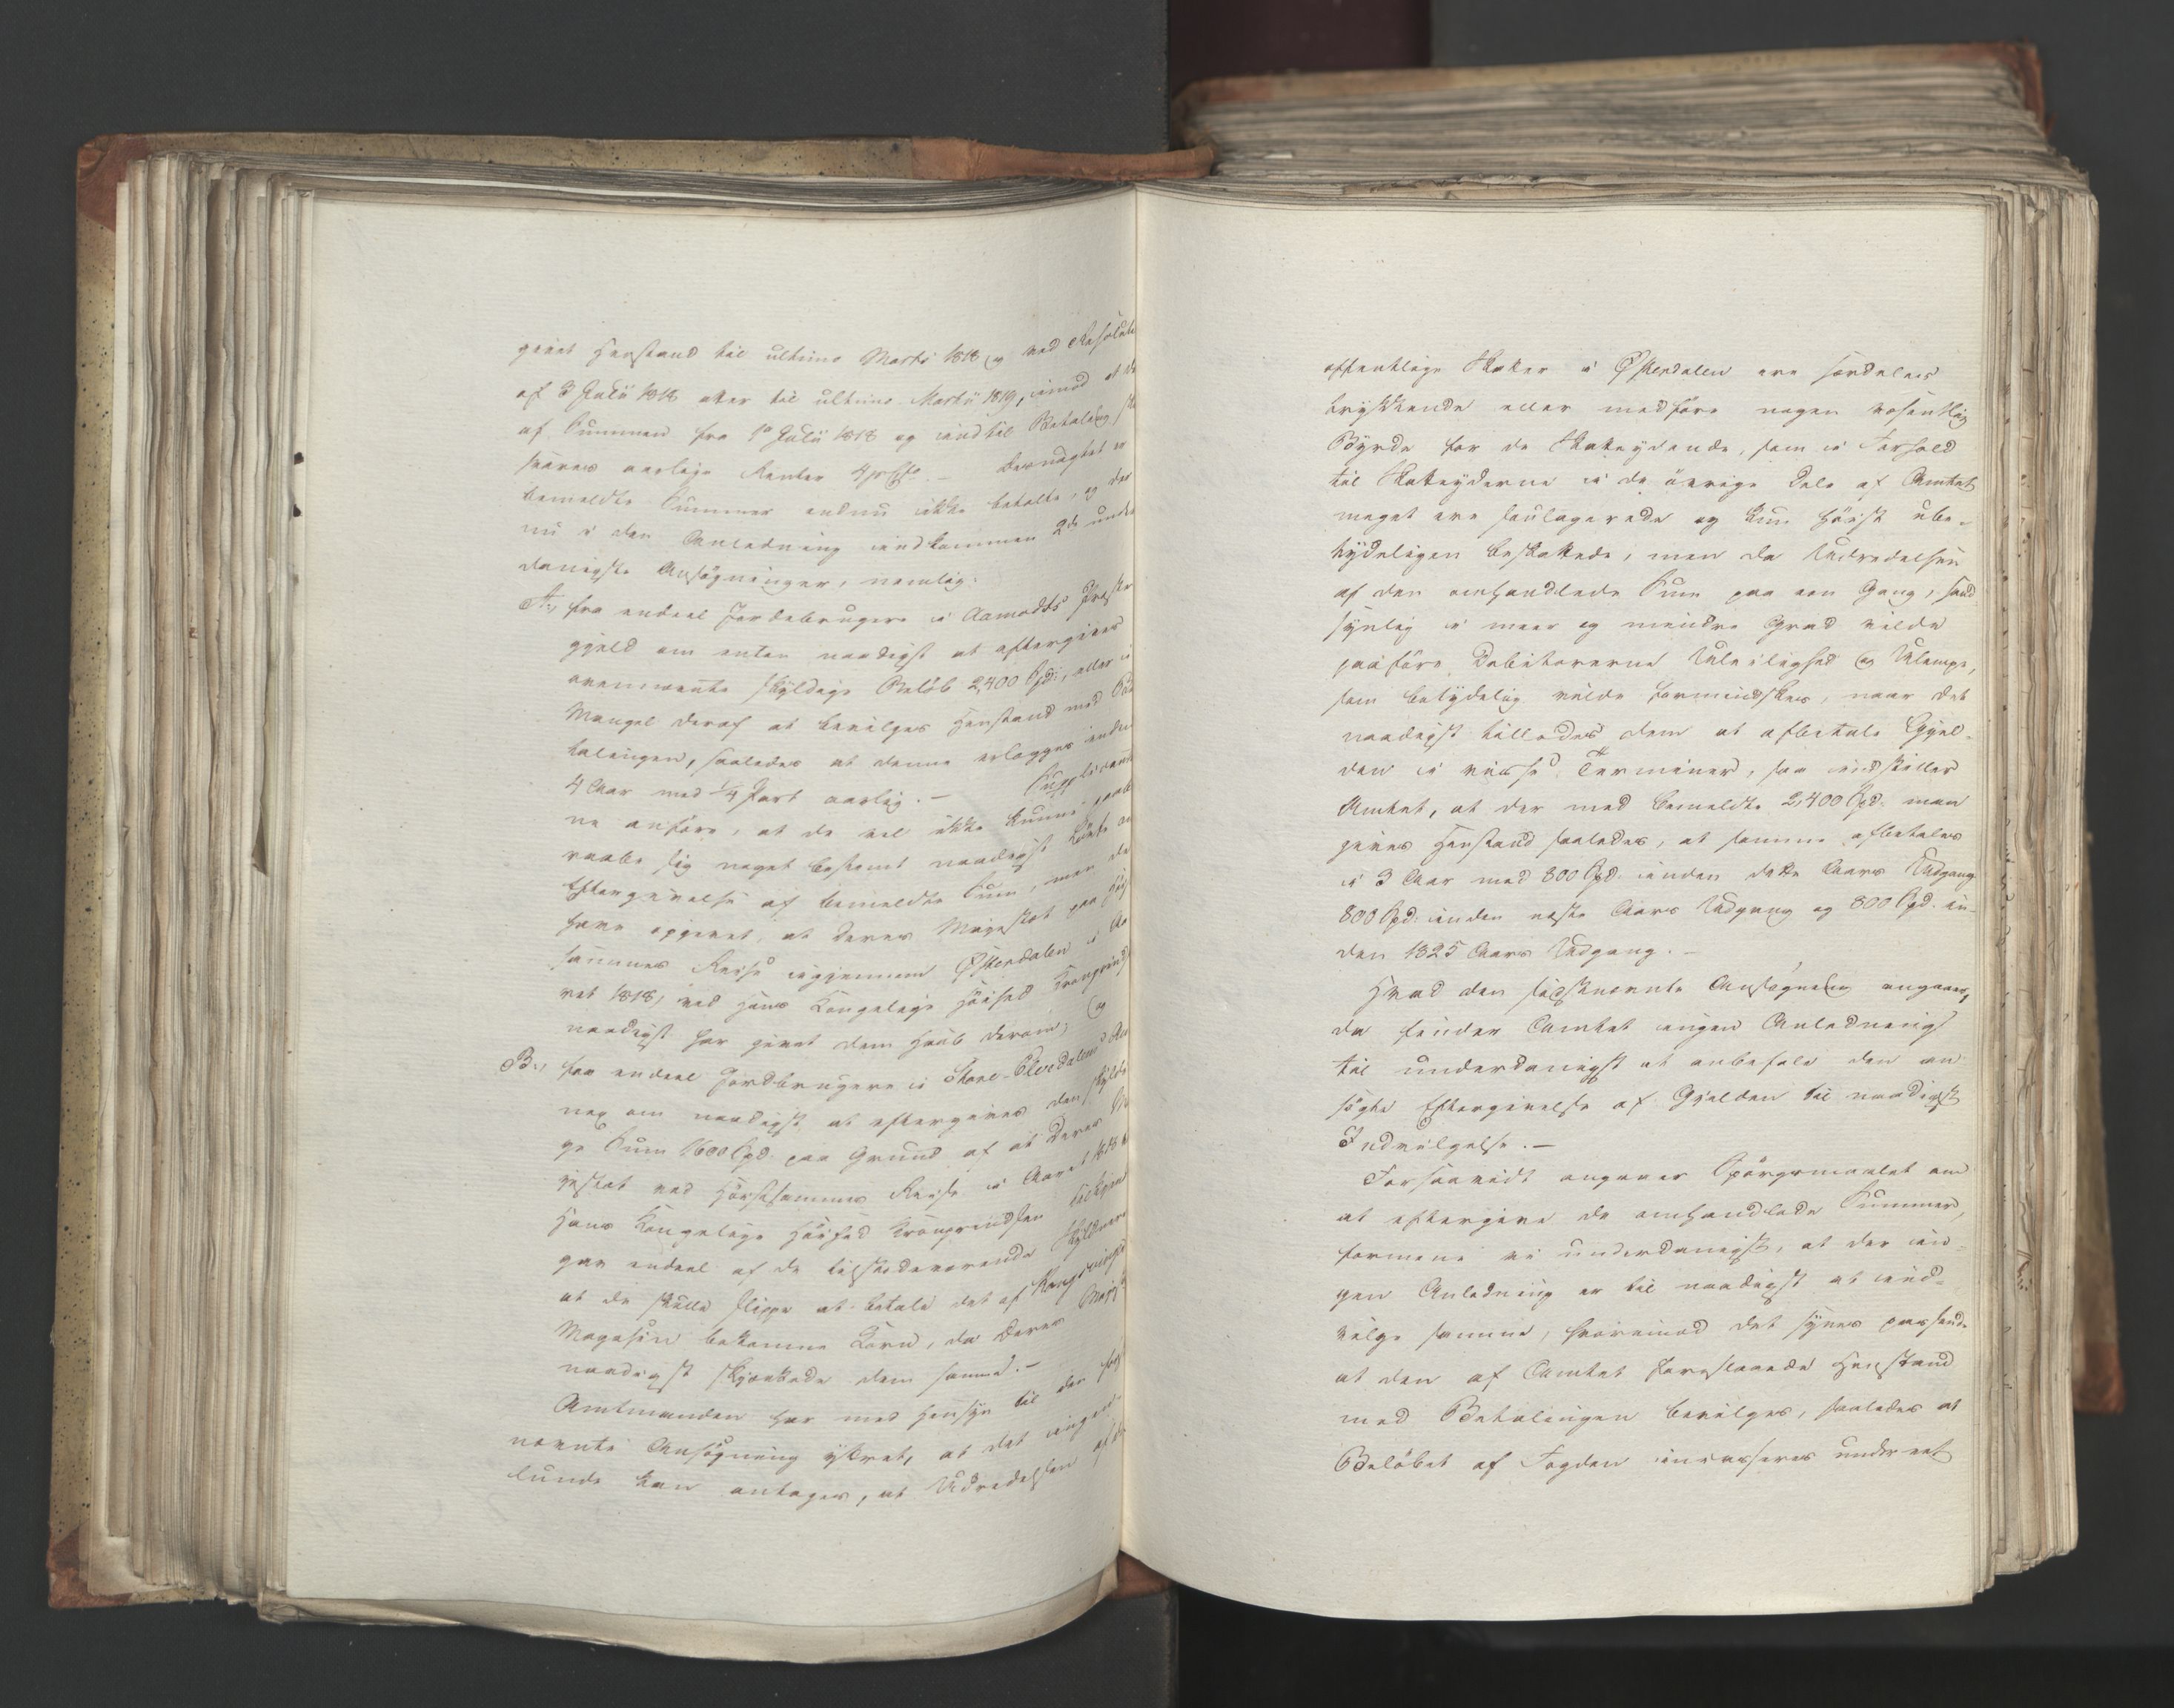 givet Henstand til ultimo Martii 1818 og ved Resoluti
af 3 Julii 1818 atter til ultimo Martii 1819, imod at de
af Summen fra 1ste Julii 1818 og indtil Betaling
svares aarlige Renter 4 prCto. – Uagtet er
bemeldte Summer endnu ikke betalte, og der
nu i den Anledning indkommen 2de under
danigste Ansøgninger, nemlig:
A., fra endeel Jordebrugere i Aamodts Præste
gjeld om enten naadigst at eftergives
ovennævnte skyldige Beløb 2,400 Spd:, eller i
Mangel deraf at bevilges Henstand med Be
talingen, saaledes at denne erlægges inden
4 Aar med 1/4 Part aarlig. – Supplicanter
ne anføre, at de vel ikke kunne paabe
raabe sig noget bestemt naadigst Løfte om
Eftergivelse af bemeldte Sum, men de
have opgivet, at Deres Majestæt paa Høi
sammes Reise igjennem Østerdalen i Aa
ret 1818, ved Hans Kongelige Høihed Kronprinds
naadigst har givet dem Haab derom; og
B., fra endeel Jordbrugere i Store-Elvedalens An
nex om naadigst at eftergives den skyldi
ge Sum 1600 Spd. paa Grund af at Deres
jestæt ved Høistsammes Reise i Aaret 1818
Hans Kongelige Høihed Kronprindsen tilkjende
gav endeel af de tilstedeværende Skyldnere
at de skulle slippe at betale det af Kongsvinger
Magasin bekomne Korn, da Deres Maje
naadigst skjænkede dem samme. –
Amtmanden har med Hensyn til den før
nævnte Ansøgning yttret, at det ingen
lunde kan antages, at Udredelsen af de
offentlige Skatter i Østerdalen ere særdeles
trykkende eller medføre nogen væsentlig
Byrde for de Skatteydende, som i Forhold
til Skatteyderne i de øvrige Dele af Amtet
meget ere soulagerede og kun høist ube-
tydeligen beskattede, men da Udredelsen
af den omhandlede Sum paa een Gang, sand
synlig i meer og mindre Grad vilde
paaføre Debitorerne Uleilighed og Ulempe,
som betydelig vilde formindskes, naar det
naadigst tillodes dem at afbetale Gjæl-
den i visse Terminer, saa indstiller
Amtet, at der med bemeldte 2,400 Spd: maa
gives Henstand saaledes, at samme afbetales
i 3 Aar med 800 Spd. inden dette Aars Udgang
800 Spd: inden næste Aars Udgang og 800 Spd. in-
den 1825 Aars Udgang. –
Hvad den sidstnævnte Ansøgning angaaer,
da finder Amtet ingen Anledning
til underdanigst at anbefale den an
søgte Eftergivelse af Gjælden til naadigst
Indvilgelse. –
Forsaavidt angaaer Spørgsmaalet om
at eftergive de omhandlede Summer,
formene vi underdanigst, at der in-
gen Anledning er til naadigst at ind-
vilge samme, hvorimod det synes passende
at den af Amtet foreslaaede Henstand
med Betalingen bevilges, saaledes at
Beløbet af Fogden incasseres under eet